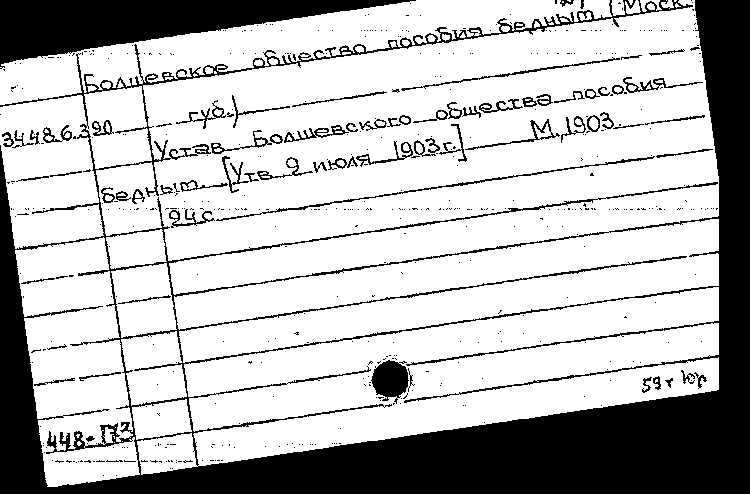 Болшевское общество пособия бедным (Моск.
губ.)
34.48.6.390
Устав Болшевского общества пособия
бедным. [Утв 9 июля 1903 г.] М., 1903.
24 с.
59 т Юр
448-173